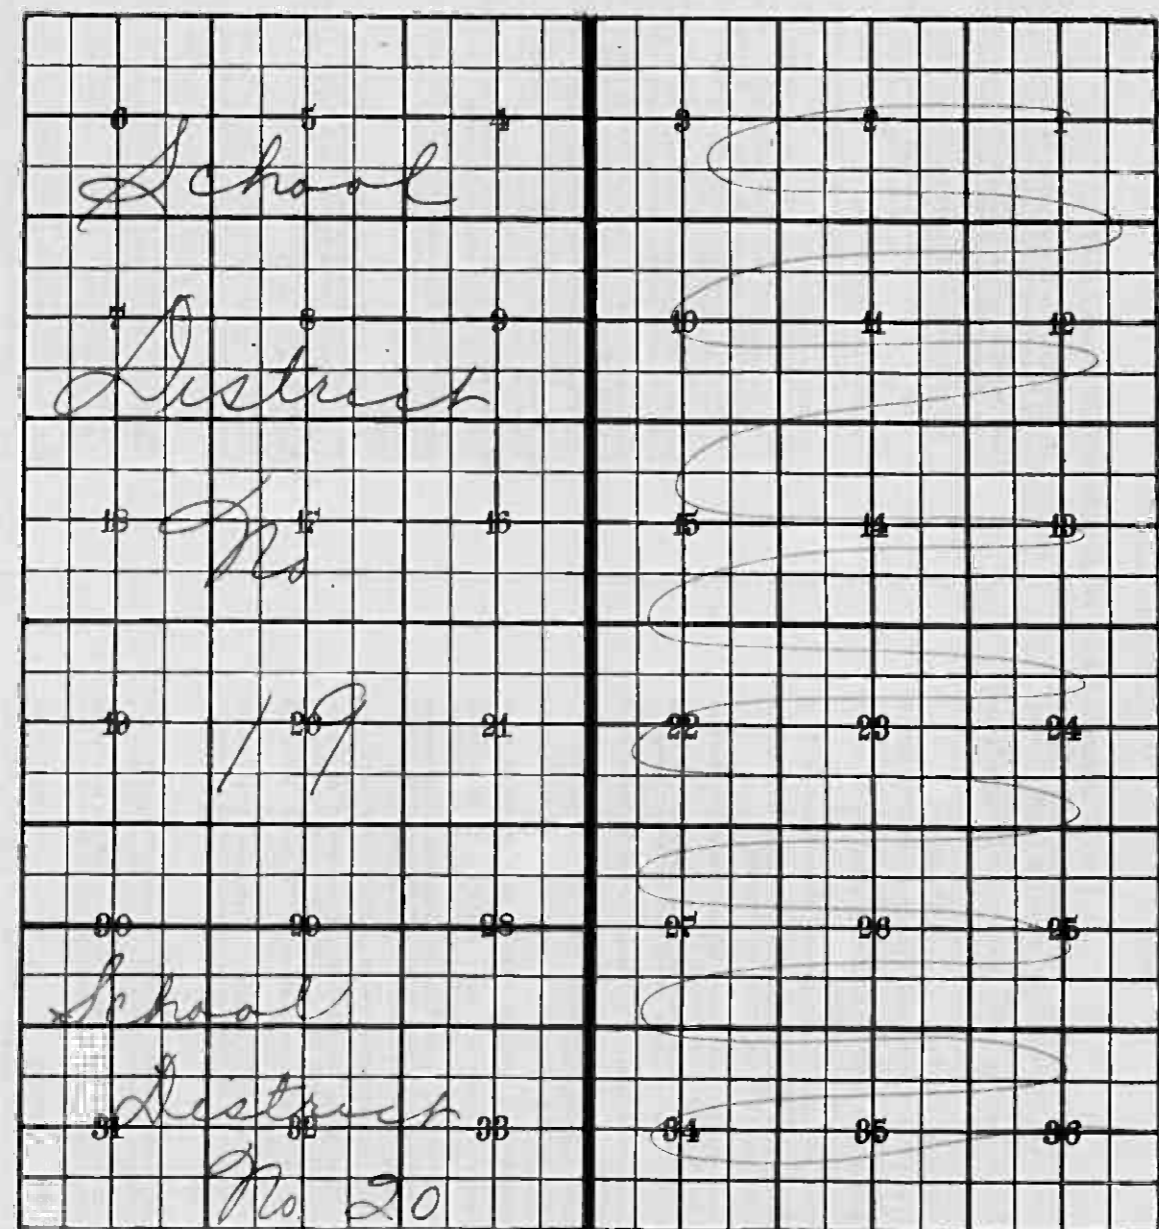 6 5 4 3 2 1
School
7 8 9 10 11 12
District
18 17 16 15 14 13
No
19 20 21 22 23 24
19
30 29 28 27 26 25
School
District
31 32 33 34 35 36
No 20